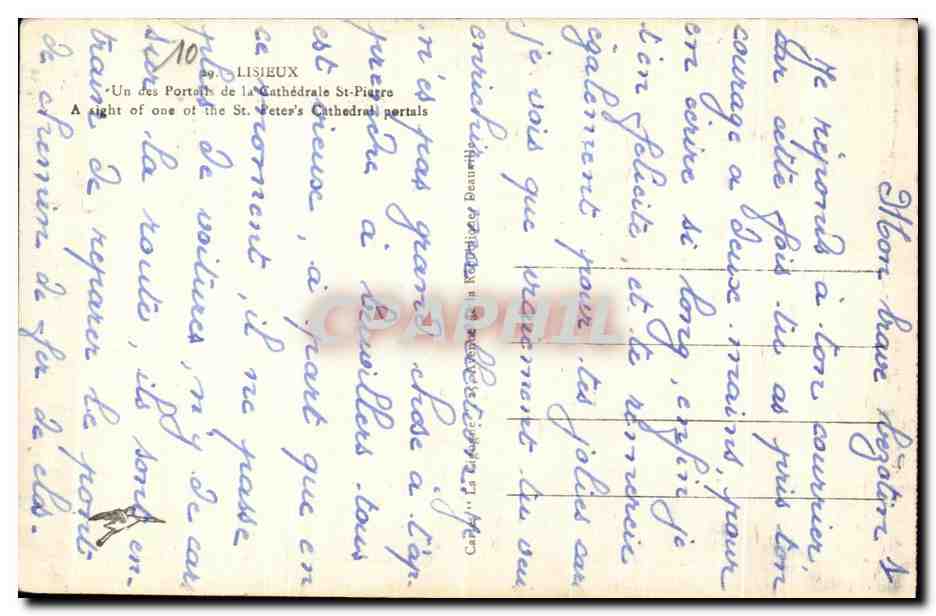 10
29. LISIEUX
Un des Portails de la Cathédrale St-Pierre
A sight of one of the St. Peter's Cathedral portals
Mon brave
Je réponds à ton courrier,
cette fois tu as pris ton
courage a deux mains, pour
en écrire si long, enfin je
t'en félicite, et te remercie
également pour tes jolies car
je vois que vraiment tu veu
enrichir ma
n'es pas grand chose a t'ap-
prendre à tous
est , à part que en
ce moment, il ne passe
plus de voitures, n'y de car
sur la route, ils sont en-
train de reparer le pont
de chemin de fer de cla-
Cartes "La Cigogne" de la République Deauville
CPAPHIL